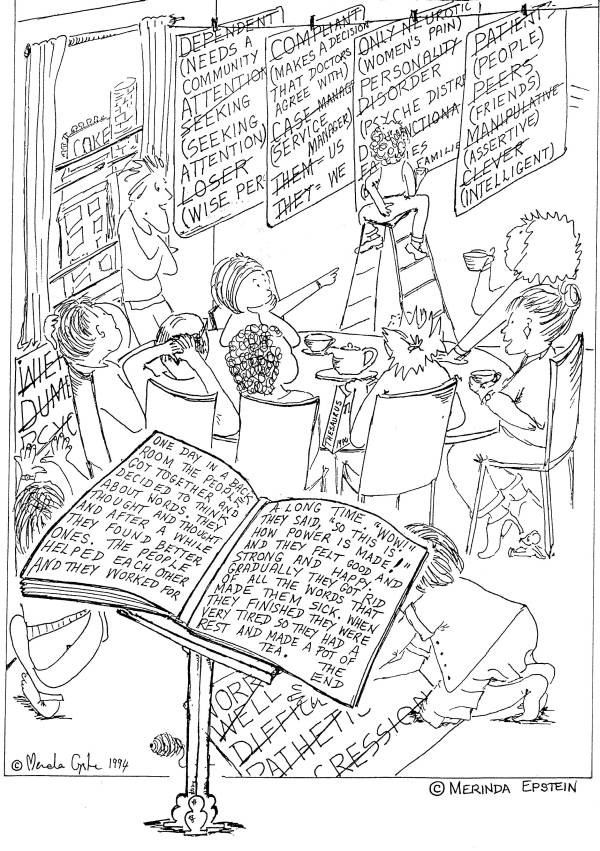 DEPENDENT
(NEEDS A
COMMUNITY
ATTENTION
SEEKING
(SEEKING
ATTENTION)
LOSER
(WISE PER
COMPLIANT
(MAKES A DECISION
THAT DOCTORS
AGREE WITH)
CASE MANAGE
(SERVICE
MANAGER)
THEM = US
THEY = WE
ONLY NEUROTIC
(WOMEN'S PAIN)
PERSONALITY
DISORDER
(PSYCHE DISTR
FAMILIE
PATIENTS
(PEOPLE)
PEERS
(FRIENDS)
MANIPULATIVE
(ASSERTIVE)
CLEVER
(INTELLIGENT)
COKE
DUMP
PSYC
THESAURUS
1994
ONE DAY IN A BACK
ROOM THE PEOPLE
GOT TOGETHER AND
DECIDED TO THINK
ABOUT WORDS. THEY
THOUGHT AND THOUGHT
AND AFTER A WHILE
THEY FOUND BETTER
ONES. THE PEOPLE
HELPED EACH OTHER
AND THEY WORKED FOR
A LONG TIME. "WOW!"
THEY SAID, "SO THIS IS
HOW POWER IS MADE!"
AND THEY FELT GOOD AND
STRONG AND HAPPY. AND
GRADUALLY THEY GOT RID
OF ALL THE WORDS THAT
MADE THEM SICK. WHEN
THEY FINISHED THEY WERE
VERY TIRED SO THEY HAD A
REST AND MADE A POT OF
TEA.
THE
END
WELL
PATHETIC
GRESSION
© 1994
© MERINDA EPSTEIN